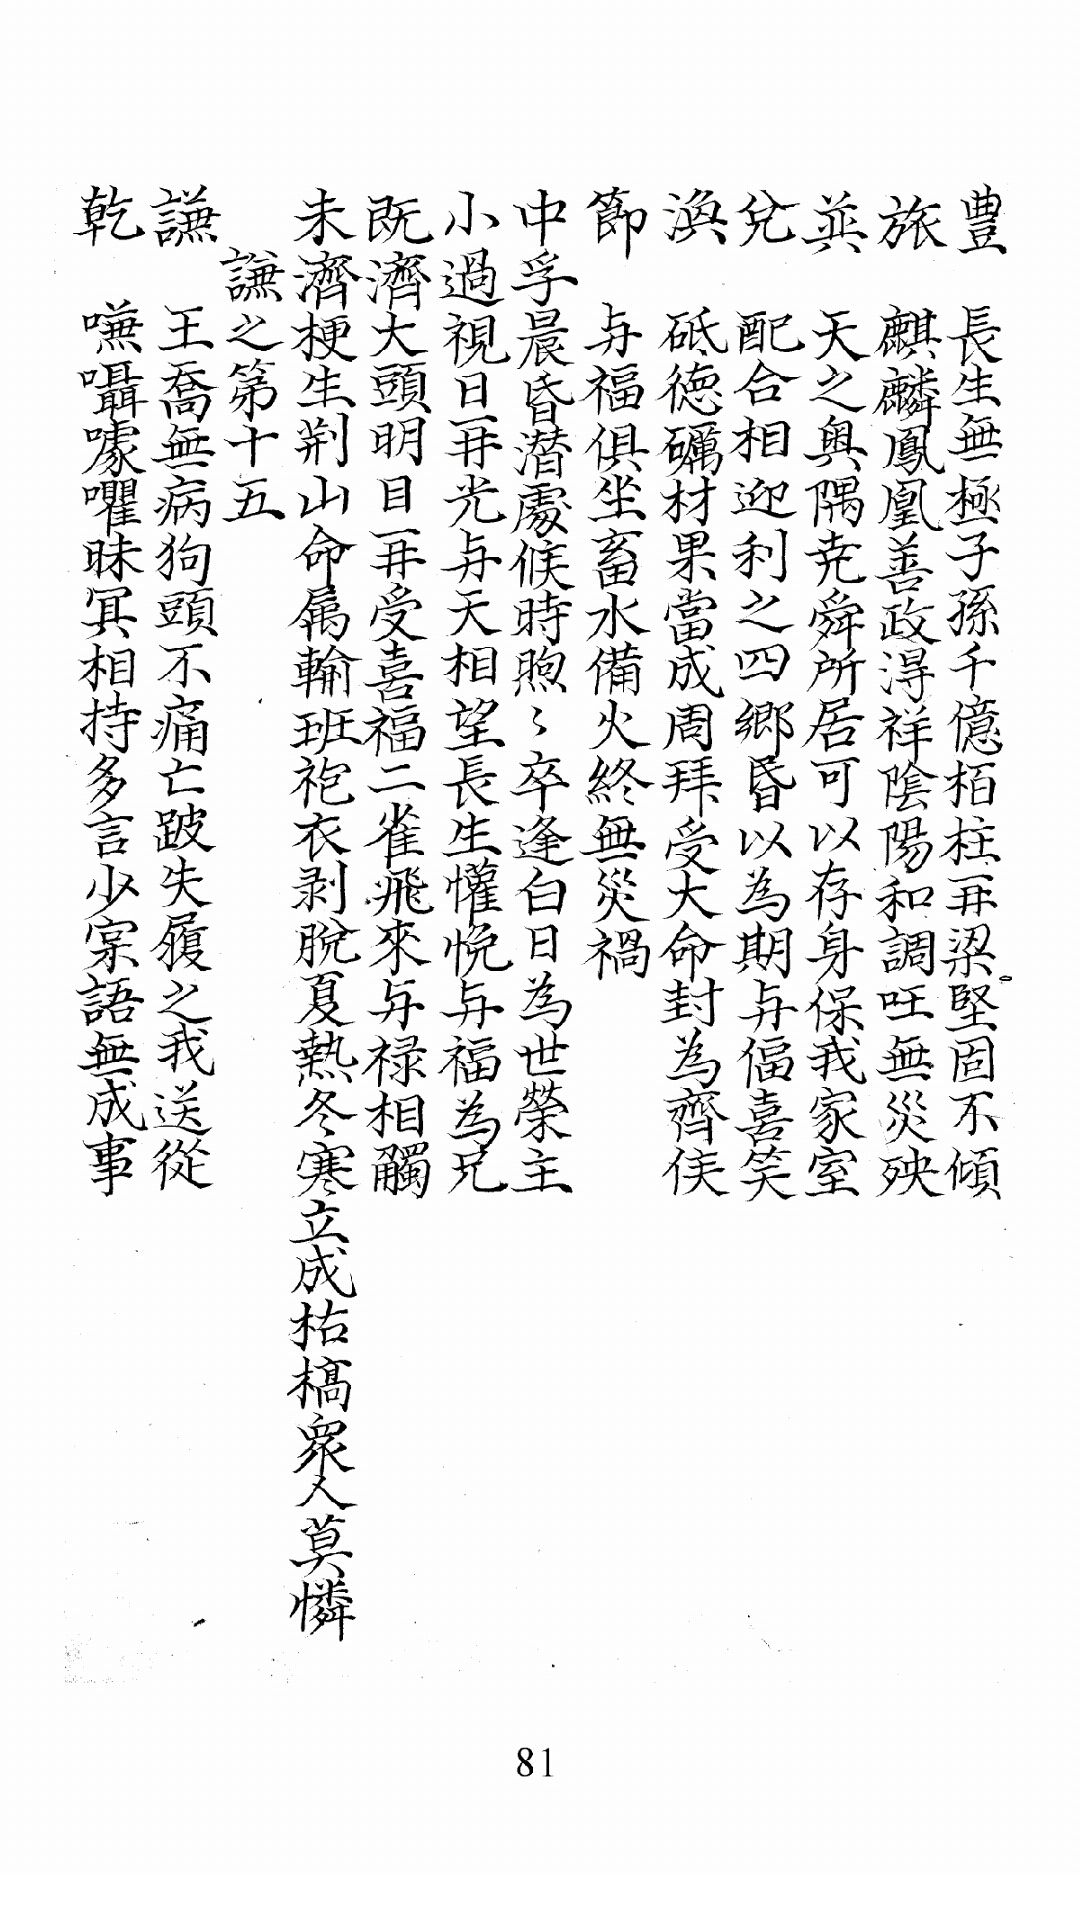 豊 長生無極子孫千億栢柱再梁堅固不傾
旅 麒麟鳳凰善政淂祥陰陽和調吐無災殃
巽 天之輿隅尭舜所居可以存身保我家室
兌 配合相迎利之四郷昏以為期与偪喜笑
渙 砥德礪材果當成周拜受大命封為齊侯
節 与福俱坐畜水備火終無災禍
中孚晨昏潜處候時煦〻卒逢白日為世榮主
小過視日再光与天相望長生懽恱与福為兄
既濟大頭明目再受喜福二雀飛來与禄相觸
未濟梗生荆山命属輸班袍衣剥脫夏熱冬寒立成枯槁衆人莫憐
謙之第十五
謙 王喬無病狗頭不痛亡跛失履之我送從
乾 嘸囁嚄嚁昧冥相持多言少寀語無成事
81